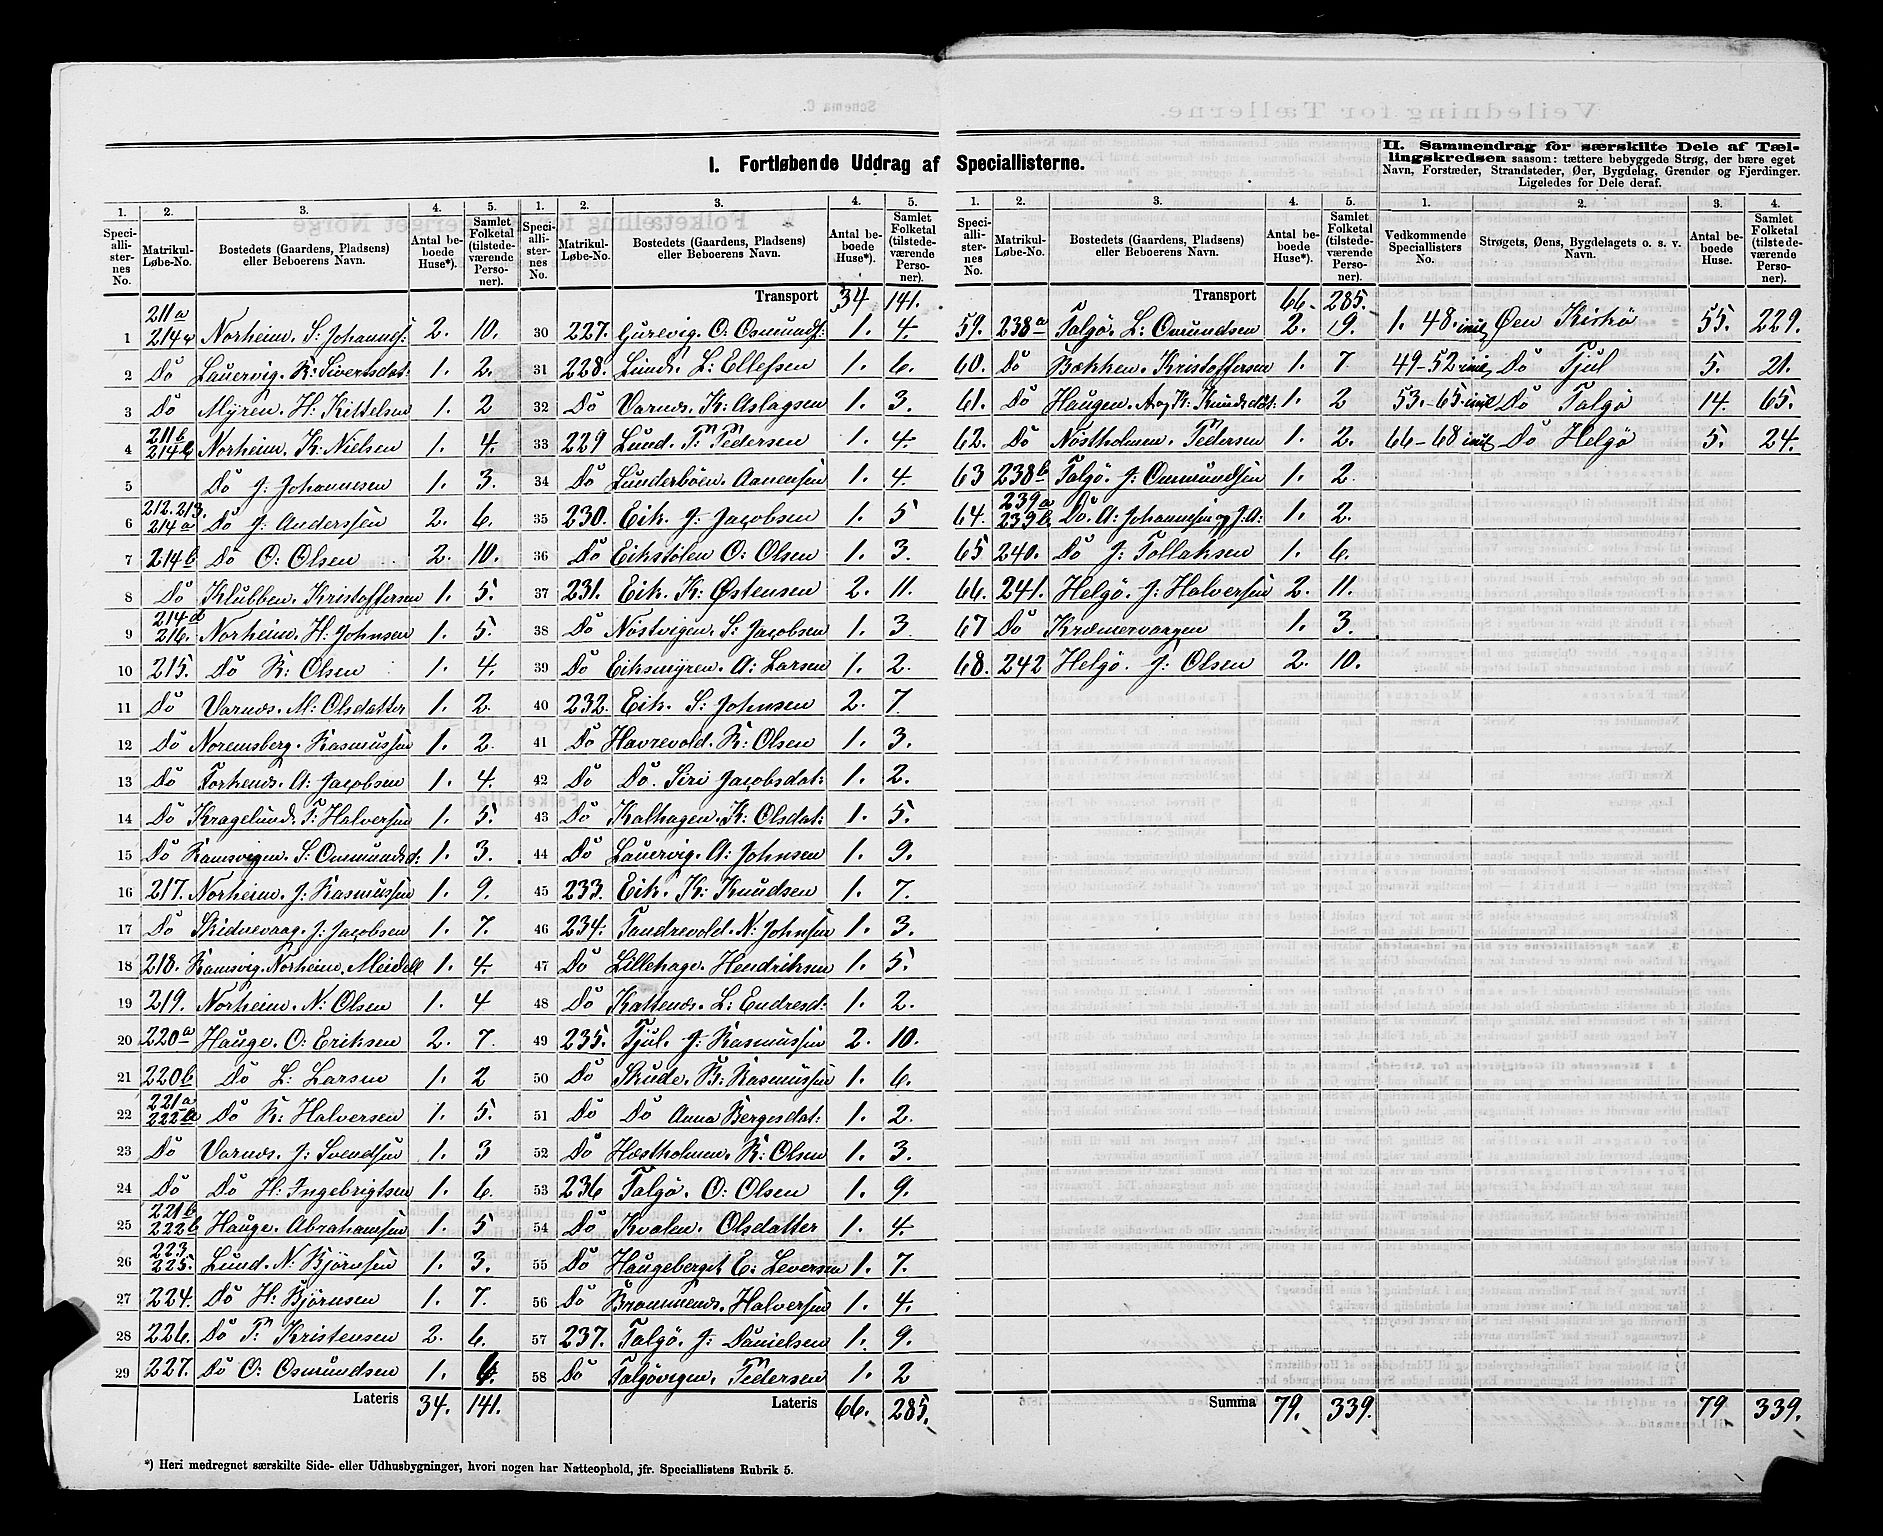 I. Fortløbende Uddrag af Speciallisterne.
1. 2. 3. 4. 5.
Speciallisternes No. Matrikul-Løbe-No. Bostedets (Gaardens, Pladsens) eller Beboerens Navn. Antal beboede Huse*). Samlet Folketal (tilstedeværende Personer).
1 211a 214a Norheim. S: Johannes: 2. 10.
2 Do Lauervig. R: Sivertsdat: 1. 2.
3 Do Myren. H. Kittelsen 1. 2
4 211b 214b Norheim. K: Nielsen 1. 4.
5 Do J: Johannesen 1. 3.
6 212. 213. 214a Do J: Anderssen 2. 6.
7 214b Do O: Olsen 2. 10.
8 Do Klubben. Kristoffersen 1. 5.
9 214d 216. Norheim. H: Johnsen 1. 5.
10 215. Do R: Olsen 1. 4.
11 Do Varnes. M: Olsdatter 1. 2.
12 Do Noremsberg. Rasmussen 1. 2.
13 Do Torhens. A: Jacobsen 1. 4.
14 Do Kragelund. T: Halversen 1. 5.
15 Do Ramsvigen. S: Osmundsd: 1. 3.
16 217. Norheim. J: Rasmussen 1. 9.
17 Do Skidnevaag. J: Jacobsen 1. 7.
18 218. Ramsvig. Norheim. Meidell 1. 4.
19 219. Norheim. N: Olsen 1. 4
20 220a Hauge. O: Eriksen 2. 7.
21 220b Do L: Larsen 1. 2
22 221a 222a Do R: Halversen 1. 5.
23 Do Varnes. J: Svendsen 1. 3
24 Do Do H: Ingebrigtsen 1. 6.
25 221b 222b Hauge. Abrahamsen 1. 5
26 223. 225. Lund. N: Bjørnsen 1. 3.
27 224. Do H: Bjørnsen 1. 7.
28 226. Do T: Kristensen 2. 6.
29 227. Do O: Osmundsen 1.
Lateris 34. 141.
1. 2. 3. 4. 5.
Speciallisternes No. Matrikul-Løbe-No. Bostedets (Gaardens, Pladsens) eller Beboerens Navn. Antal beboede Huse*). Samlet Folketal (tilstedeværende Personer).
Transport 34 141.
30 227. Gurevig. O: Osmunds: 1. 4.
31 228. Lund. L: Ellefsen 1. 6.
32 Do Varnes. K: Aslagsen 1. 3.
33 229 Lund. T: Pedersen 1. 4.
34 Do Lunderböen. Aanensen 1. 4
35 230. Eik. J: Jacobsen 1. 5
36 Do Eikstölen O: Olsen 1. 3.
37 231. Eik. K: Østensen 2. 11.
38 Do Nöstvigen. S: Jacobsen 1. 3
39 Do Eiksmyren. A: Larsen 1. 2.
40 232. Eik. S: Johnsen 2. 7.
41 Do Havrevold. R: Olsen 1. 3.
42 Do Do. Siri Jacobsdat: 1. 2.
43 Do Kalhagen. K: Olsdat: 1. 5.
44 Do Lauervig. A: Johnsen 1. 9.
45 233. Eik. K: Knudsen 1. 7.
46 234. Tandrevold. N: Johnsen 1. 3.
47 Do Lillehage. Hendriksen 1. 5.
48 Do Kattenes. L: Endresd: 1. 2.
49 235. Tjul. J: Rasmussen 2. 10.
50 Do Skude. B: Rasmussen 1. 6.
51 Do Do Anna Bergesdat: 1. 2.
52 Do Hestholmen. R: Olsen 1. 3.
53 236 Talgö. O: Olsen 1. 9.
54 Do Kvalen. Olsdatter 1. 4.
55 Do Haugeberget. E: Leversen 1. 7.
56 Do Brommenes. Halversen 1. 4.
57 237. Talgö. J: Danielsen 1. 9.
58 Do Talgövigen. Pedersen 1. 2
Lateris 66. 285.
1. 2. 3. 4. 5.
Speciallisternes No. Matrikul-Løbe-No. Bostedets (Gaardens, Pladsens) eller Beboerens Navn. Antal beboede Huse*). Samlet Folketal (tilstedeværende Personer).
Transport 66. 285.
59. 238a Talgö. L: Omundsen 2. 9.
60. Do Bækken. Kristoffersen 1. 7.
61. Do Haugen. A og K: Knudsdat. 1. 2
62. Do Nöstholmen. Pedersen 1. 2.
63 238b Talgö. J: Ommundsen 1. 2.
64. 239a 239b Do. A: Johannesen og J. A: 1. 2.
65 240. Do J: Tollaksen 1. 6.
66. 241. Helgö. J: Halversen 2. 11.
67 Do Kræmervaagen 1. 3.
68. 242 Helgö. J: Olsen 2. 10.
Summa 79. 339.
II. Sammendrag for særskilte Dele af Tællingskredsen saasom: tættere bebyggede Strøg, der bære eget Navn, Forstæder, Strandsteder, Øer, Bygdelag, Grender og Fjerdinger. Ligeledes for Dele deraf.
1. 2. 3. 4.
Vedkommende Speciallisters No. Strøgets, Øens, Bygdelagets o. s. v. Navn. Antal beboede Huse. Samlet Folketal (tilstedeværende Personer).
1. 48. incl. Øen Kiskö 55. 229.
49-52 incl. Do Tjul 5. 21.
53.-65. incl. Do Talgö 14. 65.
66-68 incl. Do Helgö 5. 24.
79 339.
*) Heri medregnet særskilte Side- eller Udhusbygninger, hvori nogen har Natteophold, jfr. Speciallistens Rubrik 5.